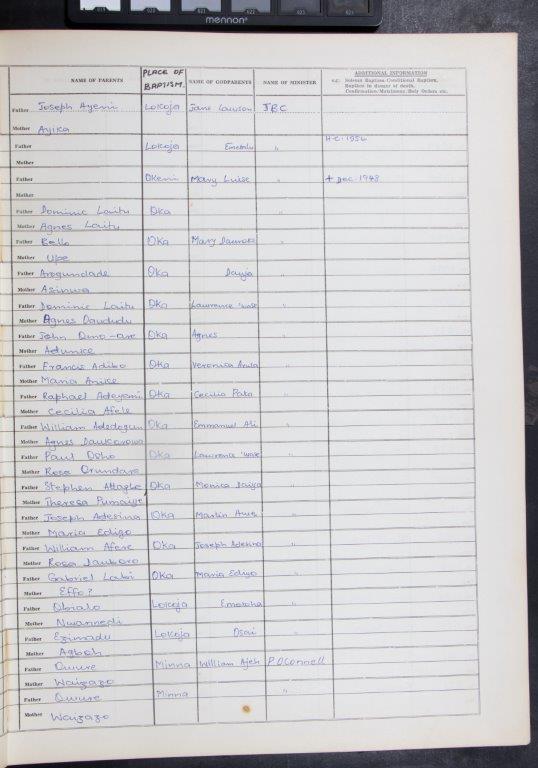 mennon
NAME OF PARENTS PLACE OF BAPTISM. NAME OF GODPARENTS NAME OF MINISTER ADDITIONAL INFORMATION
e.g.: Solemn Baptism, Conditional Baptism,
Baptism in danger of death,
Confirmation, Matrimony, Holy Orders etc.
Father Joseph Ayeni Lokoja Jane Lawson JBC
Mother Ayika
Father Lokoja " H.C. 1956
Mother
Father Okeni Mary Luise " + Dec. 1948
Mother
Father Dominic Laitu Oka "
Mother Agnes Laitu
Father Bello Oka Mary "
Mother Upe
Father Arogundade Oka "
Mother Asinwa
Father Dominic Laitu Oka Lawrence "
Mother Agnes Daududu
Father John Omo-are Oka Agnes "
Mother Adunke
Father Francis Adibo Oka Veronica "
Mother Maria Anike
Father Raphael Adeyomi Oka Cecilia Pata "
Mother Cecilia Afele
Father William Adedogun Oka Emmanuel Ali "
Mother Agnes
Father Paul Osho Oka "
Mother Rosa Orundare
Father Stephen Attagbe Oka Monica "
Mother Theresa
Father Joseph Adesina Oka Martin "
Mother Maria Edigo
Father William Afere Oka Joseph Adesina "
Mother Rosa
Father Gabriel Labi Oka Maria Edigo "
Mother Effo?
Father Obialo Lokoja "
Mother Nwannedi
Father Ezimadu Lokoja Osai "
Mother Agboh
Father Owure Minna William Ajeh P. OConnell
Mother Waizazo
Father Owure Minna "
Mother Waizazo